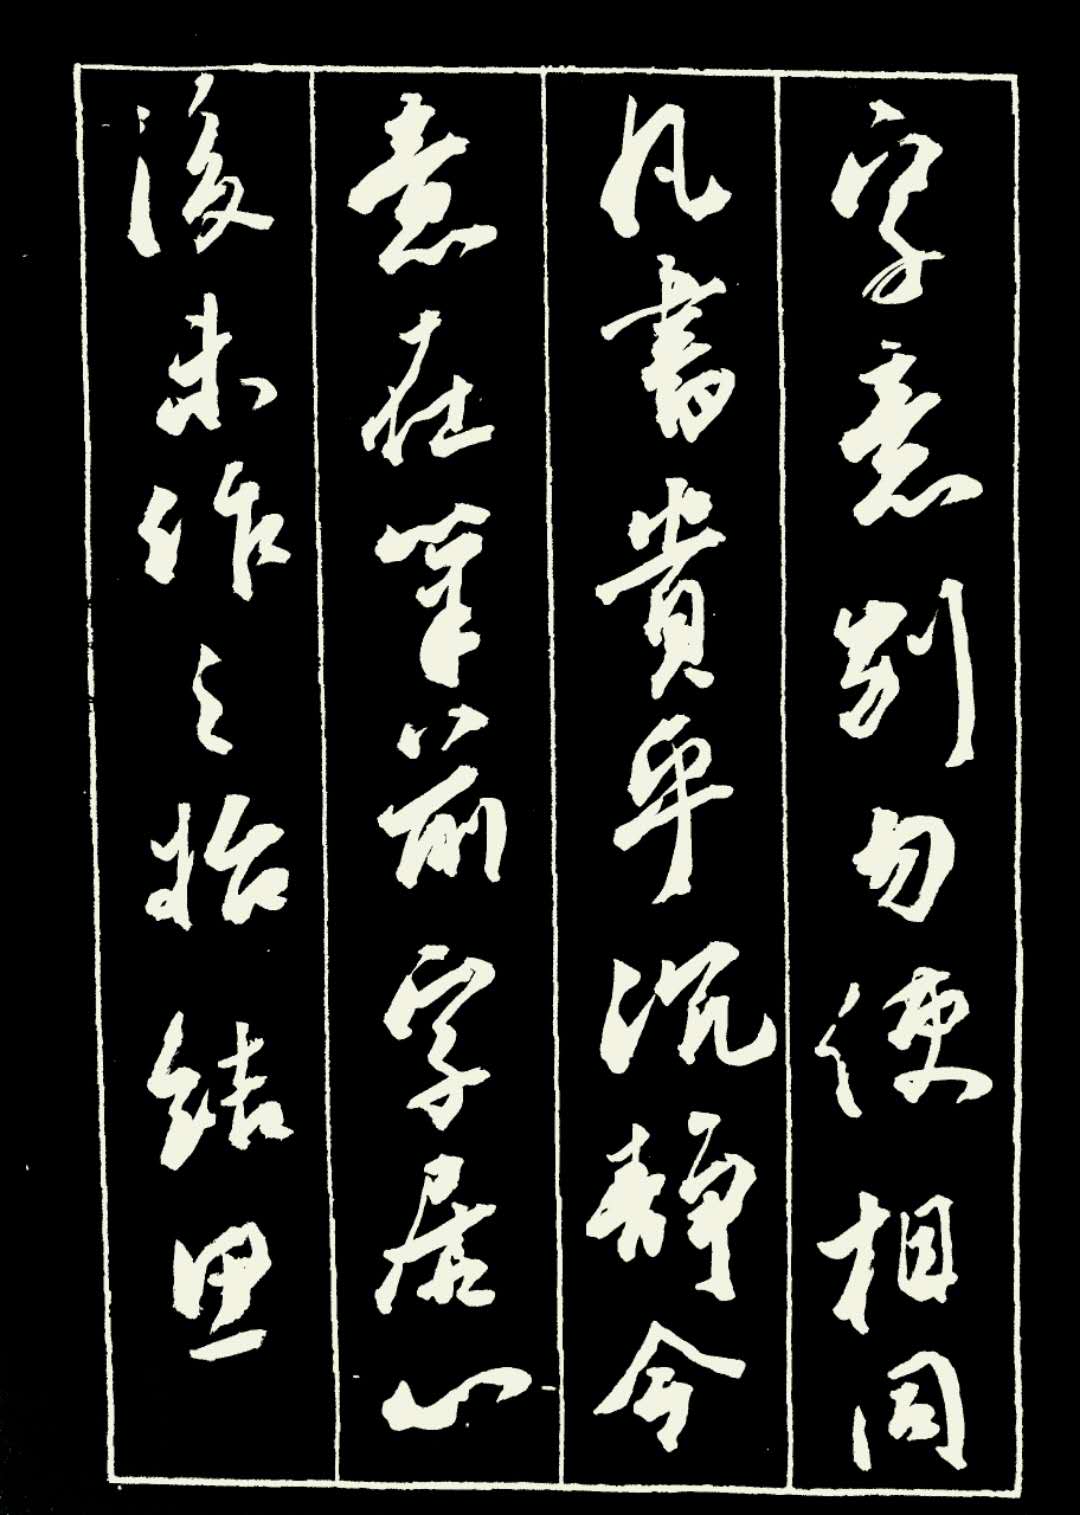 字意別勿使相同
凡書貴平沉靜令
意在筆前字居心
後未作之始結思